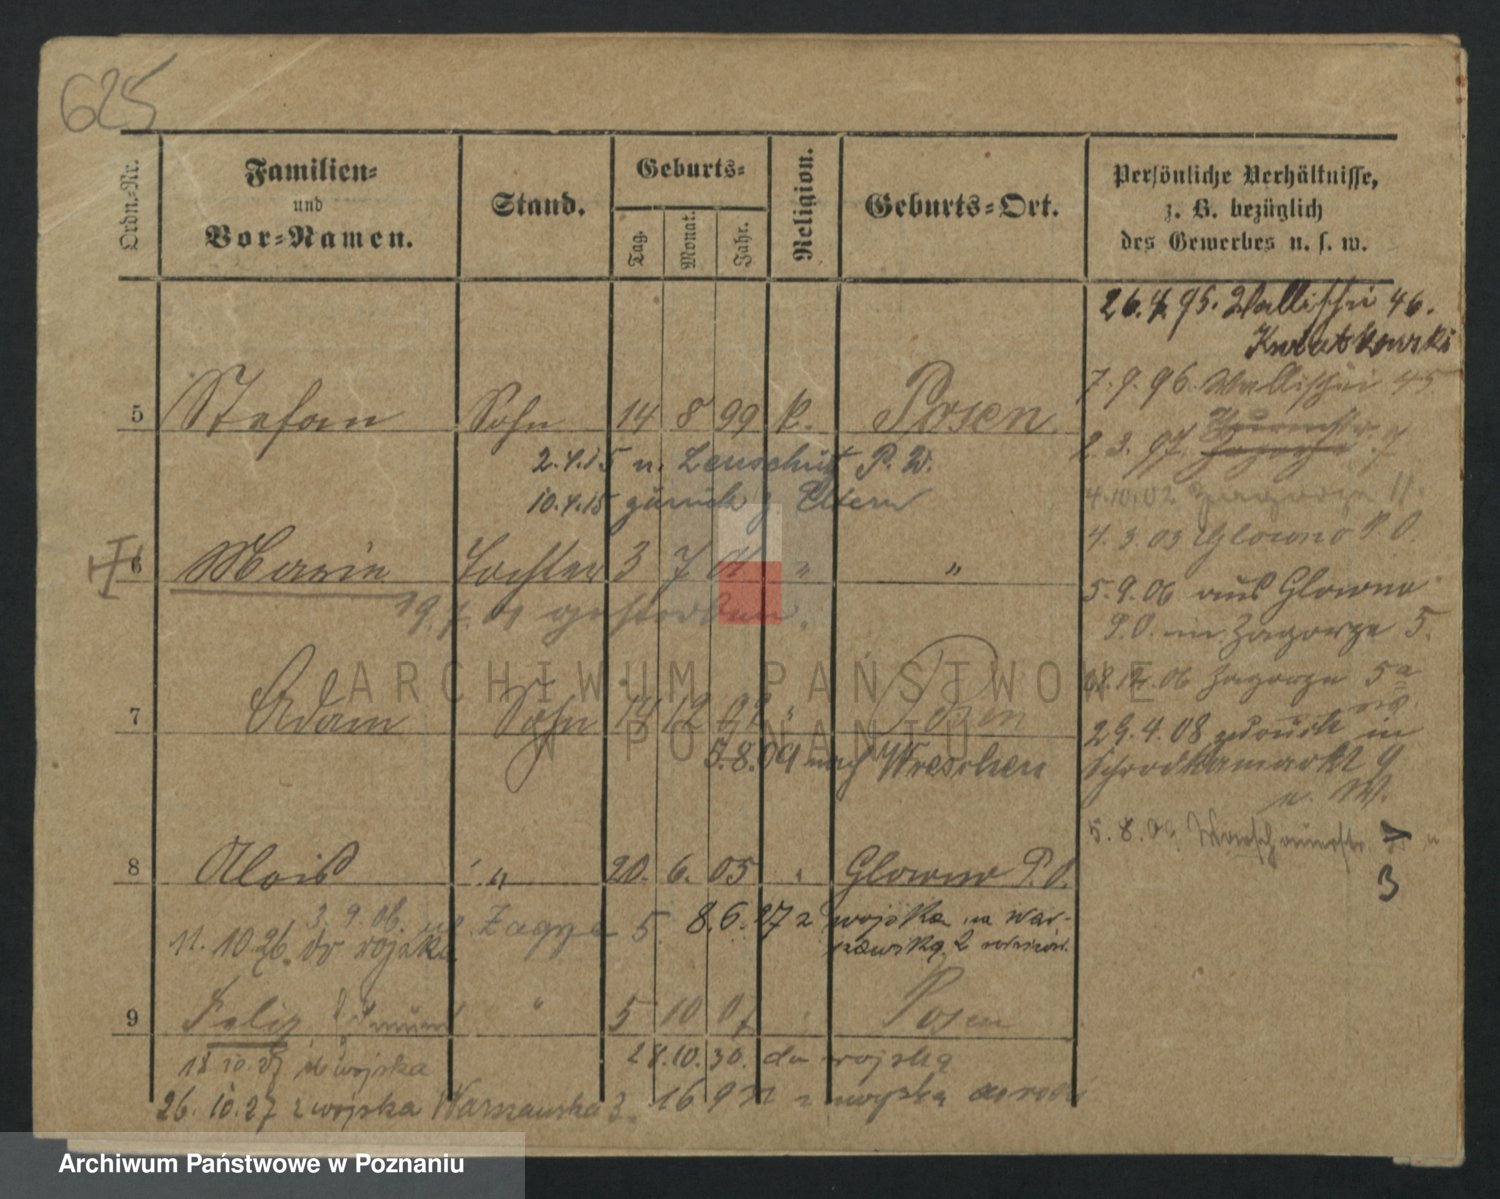 625
Ordn.-Nr.
Familien-
und
Vor-Namen.
Stand.
Geburts-
Tag.
Monat.
Jahr.
Religion.
Geburts-Ort.
Persönliche Verhältnisse,
z. B. bezüglich
des Gewerbes u. s. w.
26.4.95. Wallischei 46.
Kwiatkowski
7.9.96. Wallischei 45
5 Stefan Sohn 14 8 99 k. Posen
2.3.97. Zagorze 7
2.4.15 n. Lenschütz P. W.
4.10.02 Zagorze 11.
10.4.15 zurück z. Eltern
4.3.03 Glowno P. O.
6 Marie Tochter 3 7 01 " "
5.9.06 aus Glowno
19.7.01 gestorben.
P.O. in Zagorze 5.
Zagorze 5a
7 Adam Sohn 14 12 02 " Posen
29.4.08 zurück in
5.8.09 nach Wreschen
Schrodkamarkt 9
n. W.
5.8.09 Warschauerstr.
3
8 Alois " 20. 6. 05 " Glowno P.O.
3.9.06. Zagorze 5. 8.6.27 z wojska na War-
11.10.26. do wojska
szawską 2
9 Felix " 5 10 07 Posen
18.10.27 do wojska 28.10.30. do wojska
26.10.27 z wojska Warszawska 3. z wojska
ARCHIWUM PAŃSTWOWE
W POZNANIU
Archiwum Państwowe w Poznaniu